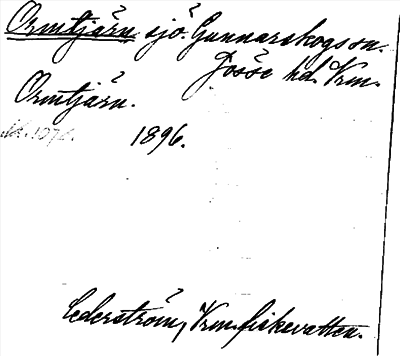 Ormtjärn sjö. Gunnarskogs sn.
Jösse hd. Vrm.
Ormtjärn.
1896.
Cederström, Vrm. fiskevatten.